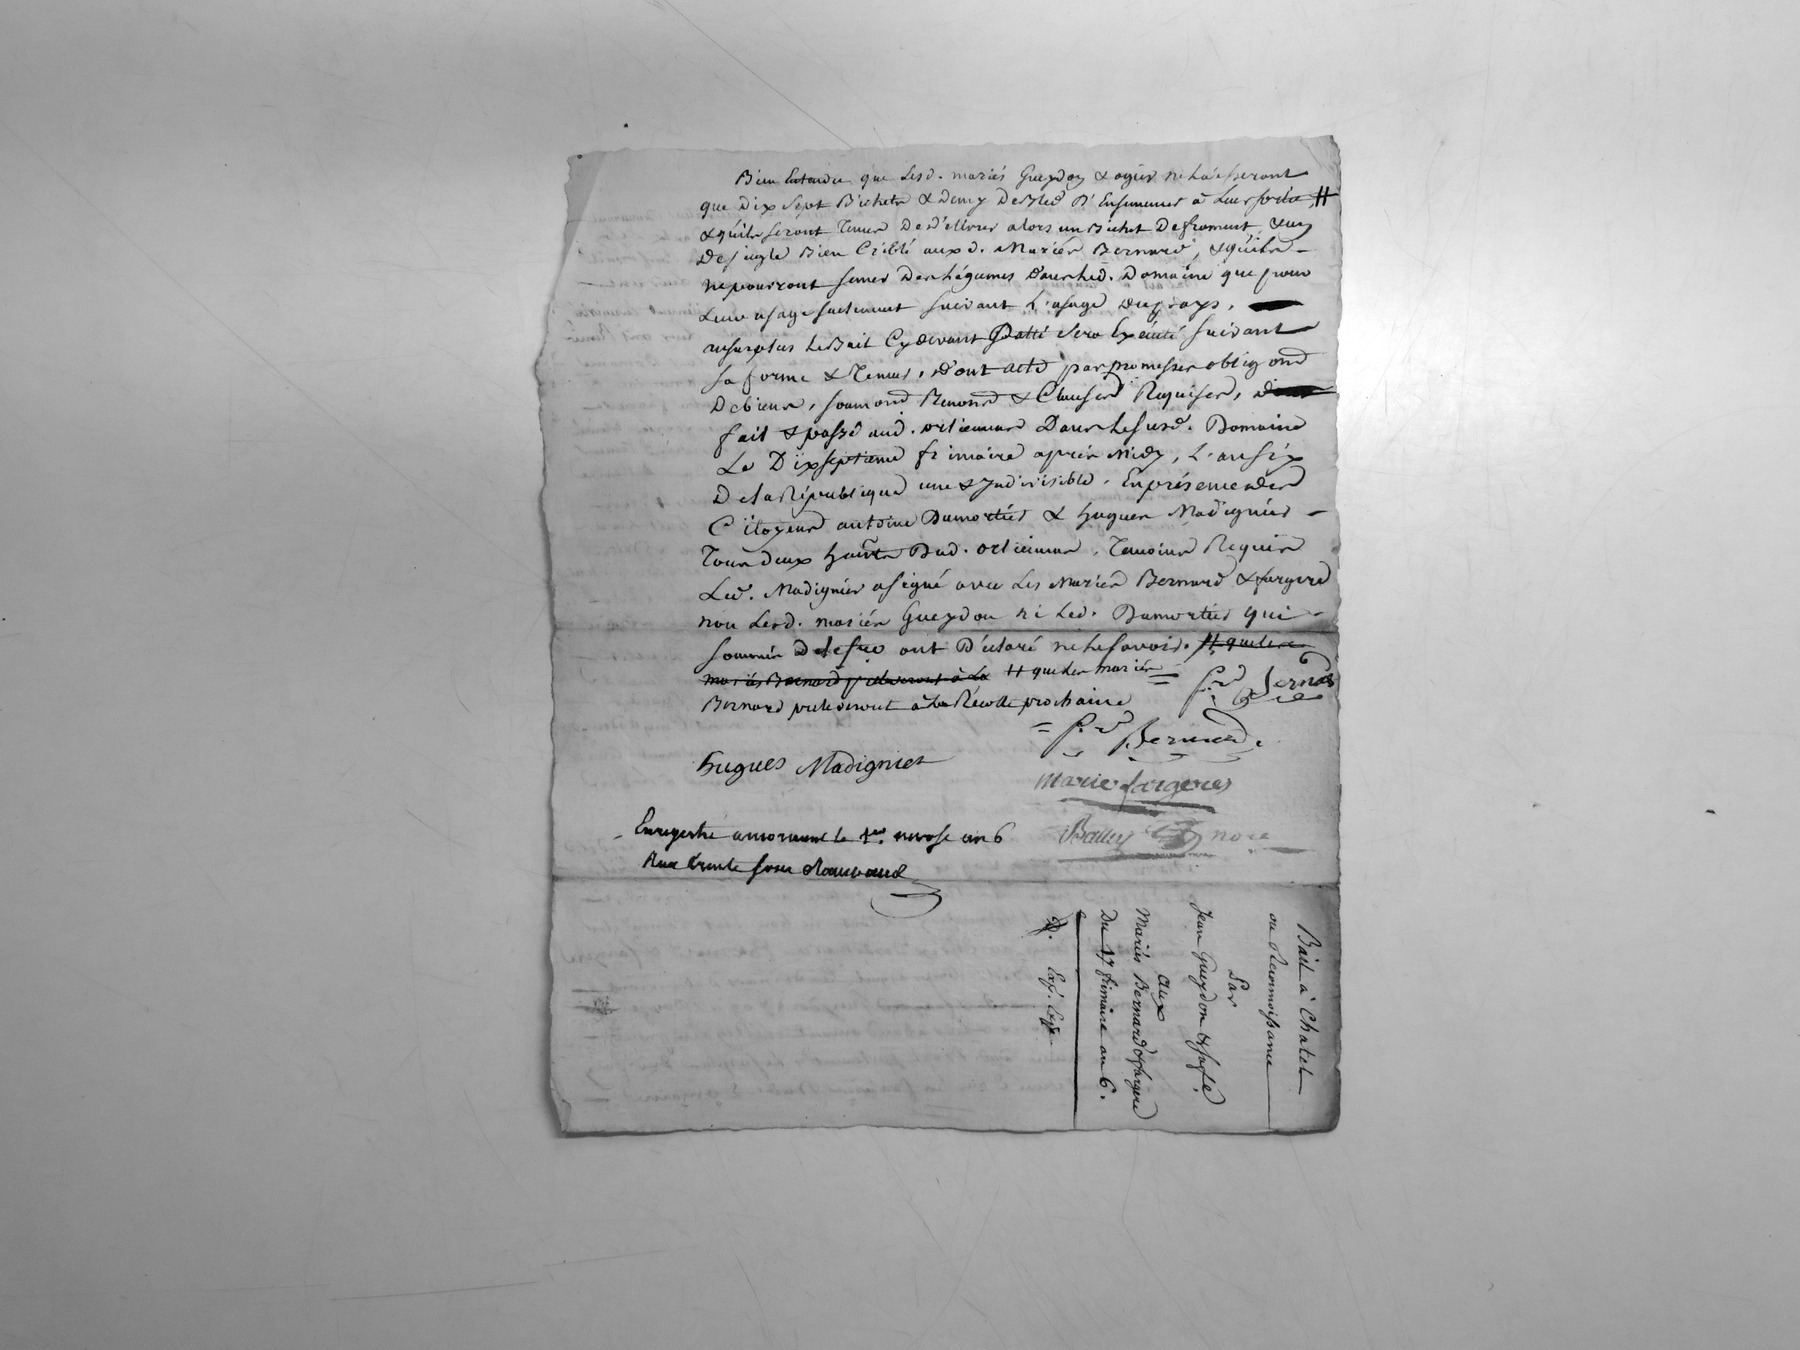 Bien Entendu que Lesd. mariés Gueydon & ogier ne Laisseront
que Dix Sept Bichets & Demy De Bled D'Ensemencé à Leur sortie, #
& qu'ils seront Tenus De Délivrer alors un Bichet De froment, & un
De seigle Bien Criblé aux d. Mariés Bernard, & qu'ils
ne pourront semer Des Légumes Dans Led. Domaine que pour
Leur usage seulement suivant L'usage Du pays,
au surplus Le Bail Cydevant Datté sera Exécuté suivant
sa forme & Teneur, D'ont acte par promesses oblig ond
De biens, soumond Renond & Clauses Requises,
fait & passé aud. ortiennas Dans Le susd. Domaine
Le Dixseptieme frimaire après Midy, L'an six
De La République une & Indivisible. En présence des
Citoyens antoine Dumortier & hugues Madignier
Tous deux hants Dud. ortiennas, Temoins Requis
Led. Madignier a signé avec Les Mariés Bernard & fargere
non Lesd. mariés Gueydon ni Led. Dumortier qui
sommés De le fre ont Déclaré ne Le savoir. # que Les
mariés Bernard preleveront à La # que Les mariés
Bernard preleveront à La Récolte prochaine
Bernard
Bernard
hugues Madignier
marie fargeres
nore
Enregistré a mornant le 1er nivose an 6
Reçu trente sous
Bail à Chatel
ou Reconnoissance
Par
Jean Gueydon & sa fe
aux
Mariés Bernard & fargere
Du 17 frimaire an 6.